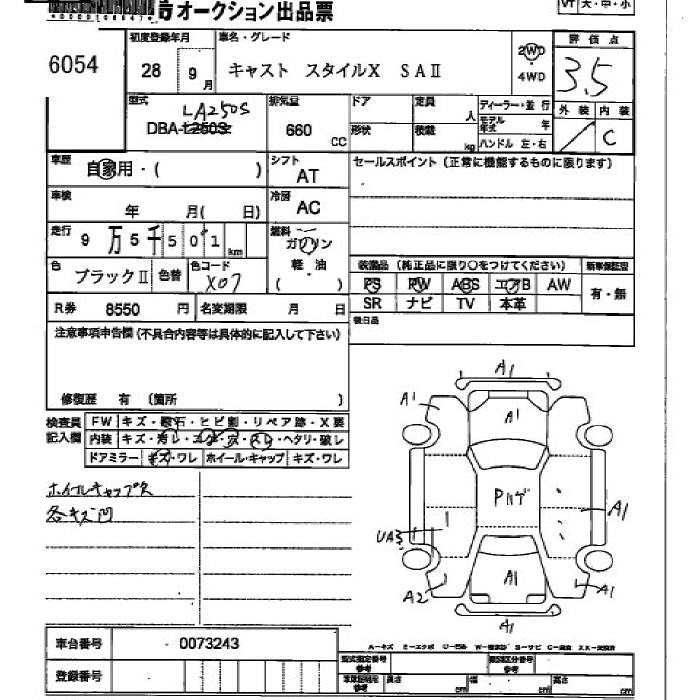 オークション出品票
VT 大・中・小
6054
初度登録年月
28 9 月
車名・グレード
キャスト スタイルX SAⅡ
2WD
・
4WD
評価点
3.5
外装 内装
C
型式
LA250S
DBA-L250S
排気量
660 CC
ドア
形状
定員 人
積載 kg
ディーラー・並行
モデル年式 年
ハンドル 左・右
車歴
自家用・( )
シフト
AT
セールスポイント(正常に機能するものに限ります)
車検
年 月( 日)
冷房
AC
走行
9万5千501 km
燃料
ガソリン
軽・油
( )
色
ブラックⅡ
色替
色コード
X07
装備品(純正品に限り○をつけてください)
新車保証書
PS PW ABS エアB AW
有・無
SR ナビ TV 本革
R券 8550 円
名変期限 月 日
後日品
注意事項申告欄(不具合内容等は具体的に記入して下さい)
修復歴 有 (箇所 )
検査員
記入欄
FW キズ・飛石・ヒビ割・リペア跡・X要
内装 キズ・汚レ・コゲ・穴・スレ・ヘタリ・破レ
ドアミラー キズ・ワレ ホイール・キャップ キズ・ワレ
ホイルキャップ欠
各キズ凹
A1
A1
A1
Pハゲ
A1
UA3
A1
A2
A1
A1
車台番号 0073243
登録番号
A-キズ E-エクボ U-凹み W-補修跡 S-サビ C-腐食 XX-交換済
型式指定番号
参考
類別区分番号
参考
参考
cm
幅 cm
高さ cm